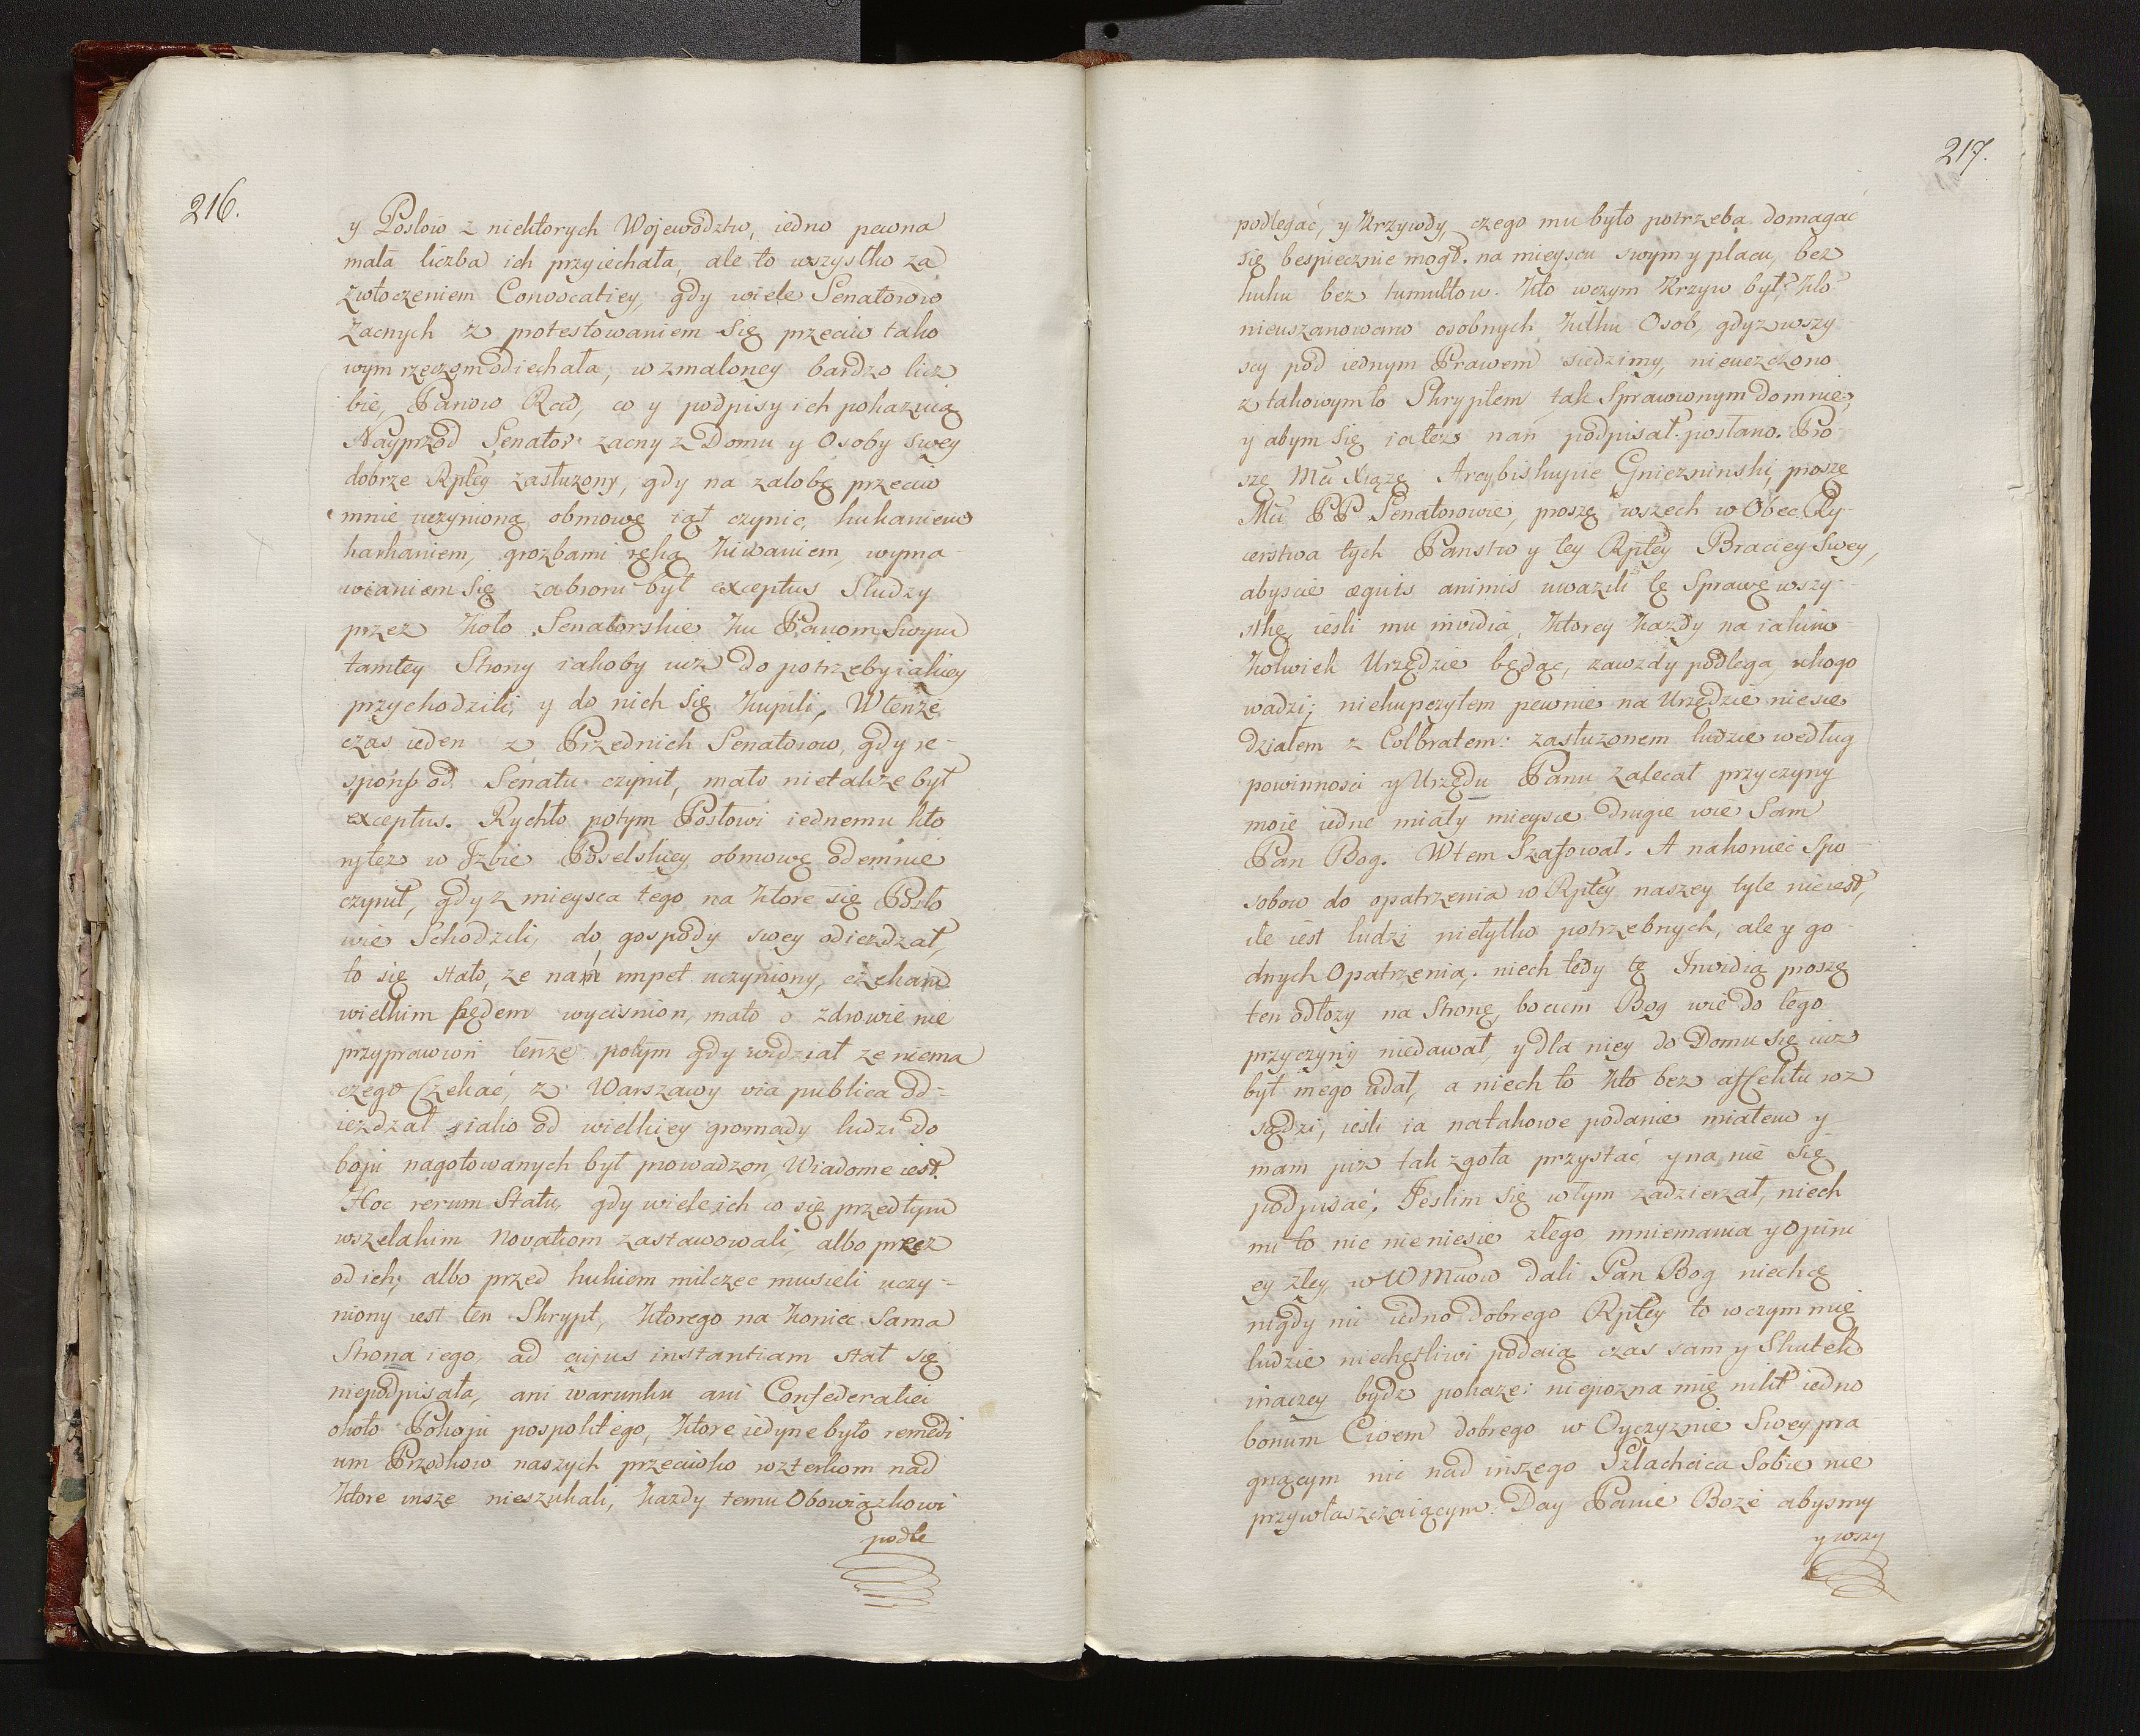 216.
y Posłow z niektorych Wojewodztw, iedno pewna
mała liczba ich przyiechała, ale to wszystko za
zwłoczeniem Convocatiey, gdy wiele Senatorow
zacnych z protestowaniem się przeciw tako
wym rzeczom odiechała, w zmaloney bardzo licz
bie, Panow Rad, co y podpisy ich pokazuią
Nayprzod Senator zacny z Domu y Osoby swey
dobrze Rptey zasłuzony, gdy na załobę przeciw
mnie uczynioną obmowę iął czynic, hukaniem
harkaniem, grozbami ręką kiwaniem, wyma-
wianiem się zabronu był exceptus Słudzy
przez koło Senatorskie ku Panom Swym
tamtey Strony iakoby uz do potrzeby iakiey
przychodzili, y do nich się kupili, Wtenze
czas ieden z Przednich Senatorow, gdy re-
spons od Senatu czynił, mało nietakze był
exceptus. Rychło potym Posłowi iednemu kto
ry tez w Izbie Poselskiey obmowę odemnie
czynił, gdy z mieysca tego na ktore się Posło
wie Schodzili, do gospody swey odiezdzał,
to się stało, ze nań impet uczyniony, czekan
wielkim pędem wycisnion, mało o zdrowie nie
przyprawion tenze potym gdy widział ze niema
czego Czekać, z Warszawy via publica od-
iezdzał iako od wielkiey gromady ludzi do
boju nagotowanych był prowadzon, Wiadome iest.
Hoc rerum Statu, gdy wiele ich co się przedtym
wszelakim novatiom zastawowali, albo przez
od ich, albo przed hukiem milczec musieli uczy-
niony iest ten Skrypt, ktorego na koniec Sama
Strona iego, ad cujus instantiam stał się
niepodpisała, ani warunku ani Confederatiei
około Pokoju pospolitego, ktore iedyne było remedi
um Przodkow naszych przeciwko rozterkom nad
ktore insze nieszukali, kazdy temu Obowiązkowi
podle
217.
podlegać, y krzywdy, czego mu było potrzeba domagać
się bespiecznie mogł. na mieyscu swym y placu, bez
huku bez tumultow. Kto wczym Krzyw był, kto
nieuszanowano osobnych kilku Osob, gdyz wszy
scy pod iednym Prawem siedzimy, nieuczczono
z takowym to Skryptem tak Sprawionym do mnie,
y abym się ia tez nań podpisał posłano. Pro
szę Mci Xiąże Arcybiskupie Gniezninski, proszę
Mci PP Senatorowie, proszę wszech w Obec Ry-
cerstwa tych Panstw y tey Rptey Braciey Swey,
abyscie æquis animis uwazili tę Sprawę wszy-
stkę, iesli mu invidia, ktorey kazdy na iakim-
kolwiek Urzędzie będąc, zawzdy podlega, u kogo
wadzi, niekupczyłem pewnie na Urzędzie nie sie
działem z Colbratem: zasłuzonem ludzie według
powinnosci y Urzędu Panu zalecał przyczyny
moie iedne miały mieysce drugie wie Sam
Pan Bog. Wtem Szafował. A nakoniec Spo-
sobow do opatrzenia w Rptey naszey tyle nieiest,
ile iest ludzi nietylko potrzebnych, ale y go-
dnych Opatrzenia, niech tedy tę Invidią proszę
ten odłozy na Stronę, bo cum Bog wie do tego
przyczyny niedawał, y dla niey do Domu się uz
był mego udał, a niech to kto bez affektu roz
sądzi, iesli ia natakowe podanie miałem y
mam juz tak zgoła przystać y na nie się
podpisać, Jeslim się wtym zadzierzał, niech
mi to nic nie niesie złego mniemania y Opini
ey złey, w W Mciow dali Pan Bog niechcę
nigdy nic iedno dobrego Rptey to wczym mię
ludzie niechętliwi podaią czas sam y Skutek
inaczey bydz pokaze: niepozna mię nikt iedno
bonum Civem dobrego w Oyczyznie Swey pra
gnącym nic nad inszego Szlachcica Sobie nie
przywłaszczaiącym. Day Panie Boze abysmy
y wszy